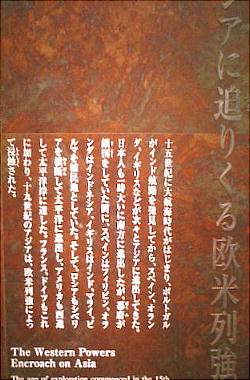 ジアに迫りくる欧米列強
十五世紀に大航海時代がはじまり、ポルトガル
がインド航路を発見してから、スペイン、オラン
ダ、イギリスなどが次々とアジアに進出してきた。
日本人も一時大いに南方に進出したが、幕府が
鎖国をしていた間に、スペインはフィリピン、オラ
ンダはインドネシア、イギリスはインド、マライ、ビ
ルマを植民地としていた。そして、ロシアもシベリ
アを横断して太平洋に進出し、アメリカも西進
して太平洋岸に達した。フランス、ドイツもこれ
に加わり、十九世紀のアジアは、欧米列強によっ
て侵蝕された。
The Western Powers
Encroach on Asia
The age of exploration commenced in the 15th